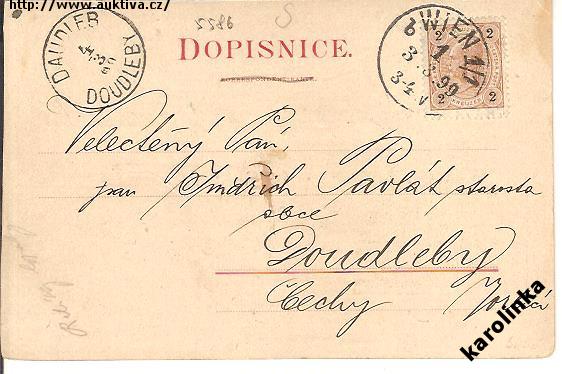 http://www.auktiva.cz/
5586
DAUDLEB
DOUDLEBY
DOPISNICE.
CORRESPONDENZ-KARTE
WIEN 1/1
1
3.3.99
2 2
2 2
KREUZER
Velectěný Pán,
pan Jindřich Pavlát starosta
obce
Doudleby
Čechy
karolinka